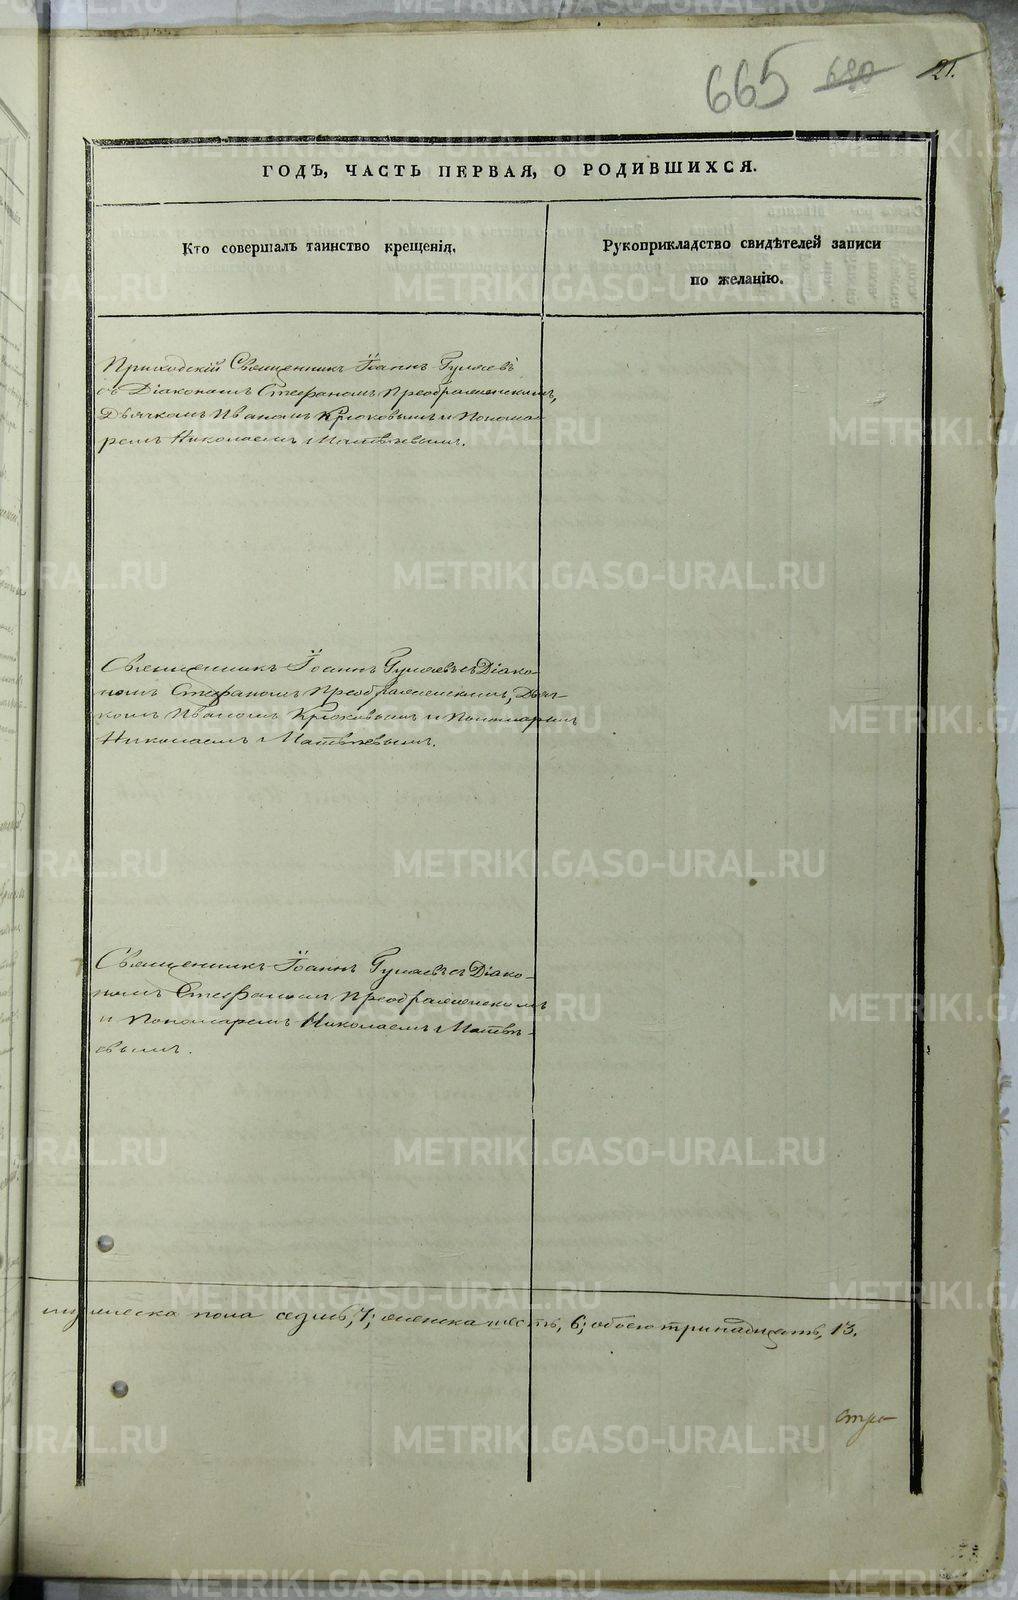 665 680 21.
ГОДЪ, ЧАСТЬ ПЕРВАЯ, О РОДИВШИХСЯ.
Кто совершалъ таинство крещенія.
Рукоприкладство свидѣтелей записи
по желанію.
Приходскій Священникъ Іоаннъ Гуляевъ
съ Діакономъ Стефаномъ Преображенскимъ,
Дьячкомъ Иваномъ Крюковымъ и Понома-
ремъ Николаемъ Матвѣевымъ.
Священникъ Іоаннъ Гуляевъ съ Діако-
номъ Стефаномъ Преображенскимъ, Дьяч-
комъ Иваномъ Крюковымъ и Пономаремъ
Николаемъ Матвѣевымъ.
Священникъ Іоаннъ Гуляевъ съ Діако-
номъ Стефаномъ Преображенскимъ
и Пономаремъ Николаемъ Матвѣ-
евымъ.
мужеска пола седмь, 7; женска шесть, 6; обоего тринадцать, 13.
METRIKI.GASO-URAL.RU